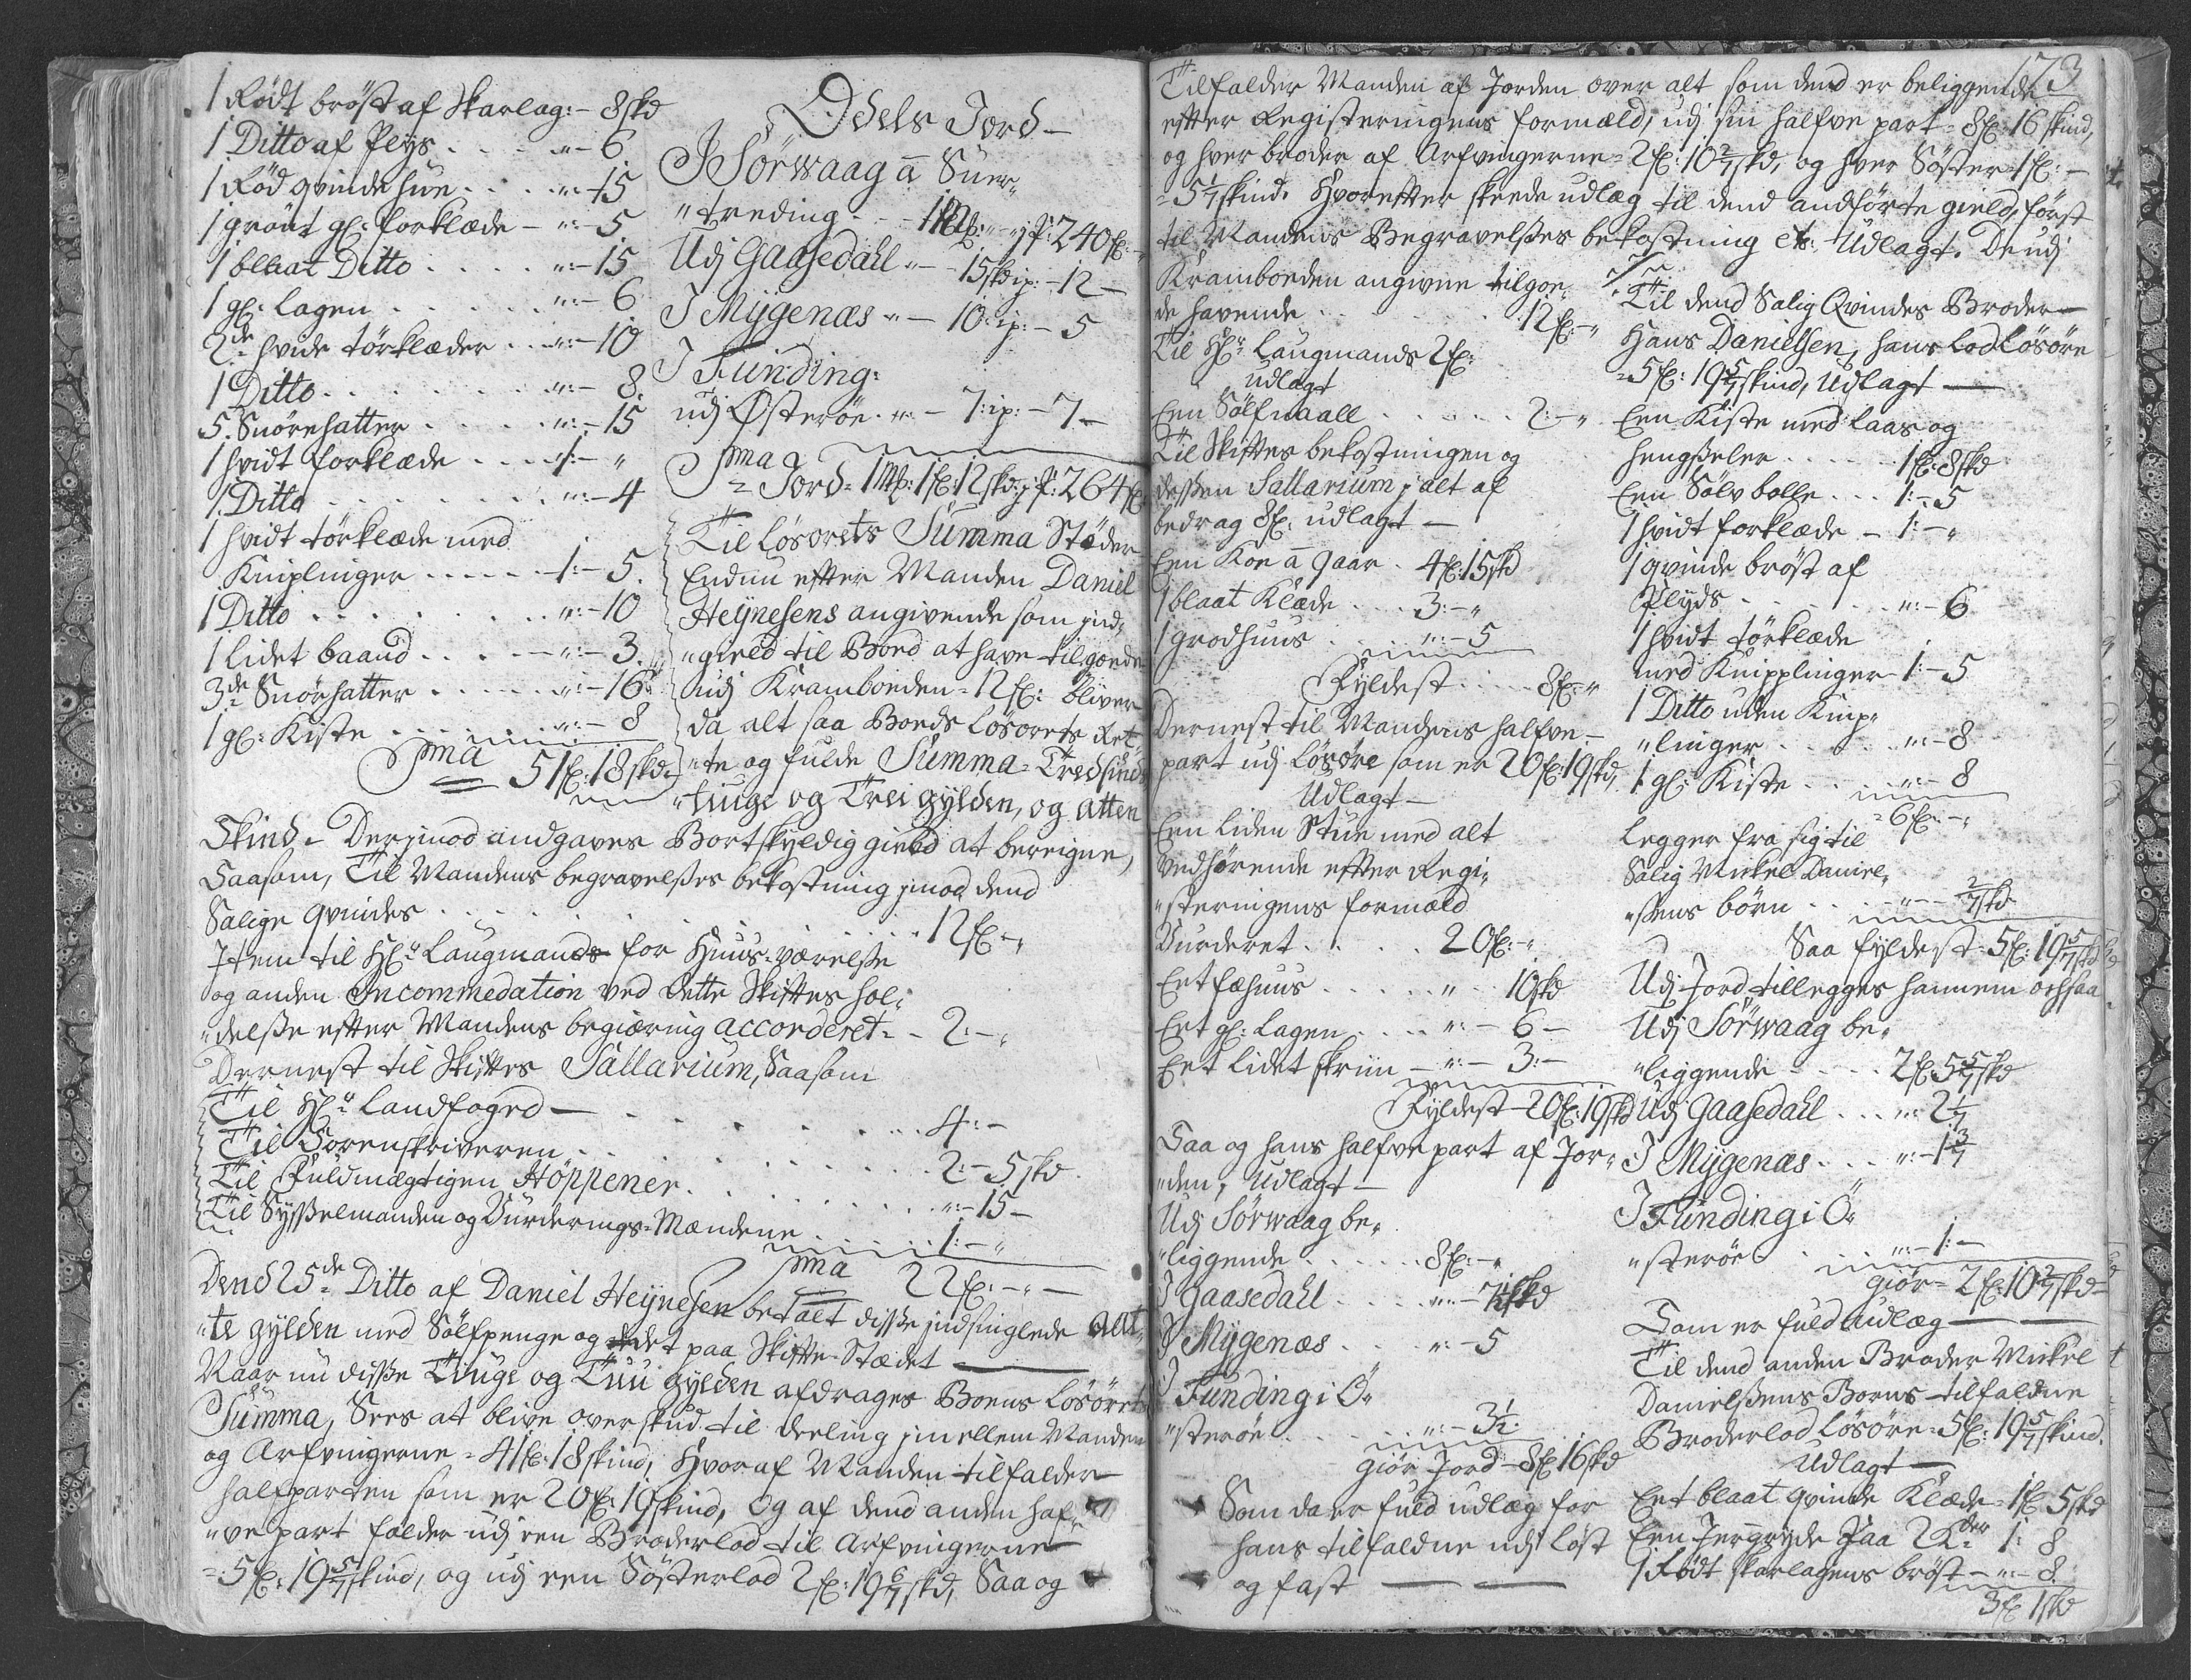 1 Rödt bröst af Skarlag: - 8 skd
1 Ditto af Plys . . . „:- 6
1 Röd qvinde hue . . . „:- 15
1 grönt gl: forklæde - „:- 5
1 blaat Ditto . . . . „:- 15
1 gl: Lagen . . . . . „:- 6
2de hvide törklæder . . „:- 10
1 Ditto . . . . . . „:- 8
5. Snörehatter . . . . „:- 15
1 hvidt forklæde . . . 1:- „
1. Ditto . . . . . . „:- 4
1 hvidt törklæde med
Kniplinger . . . . . 1:- 5.
1 Ditto . . . . . . „:- 10
1 lidet baand . . . . „:- 3.
3de Snörhatter . . . . „:- 16
1 gl: Kiste . . . . . „:- 8
Sma 51 fl: 18 skd
Odels Jord -
I Sörwaag ā Suer„
„treding . . - 1 Mk: „ - jp: 240 fl: -
Udj Gaasedall „ - 15 skd jp: - 12 -
I Mÿgenæs „ - 10: jp: - 5
I Funding:
udj Österöe . „: - 7: jp: - 7 -
Sma
= Jord = 1 Mk: 1 fl: 12 skd: jp: 264 fl
Til Lösörets Summa Stæder
Endnu efter Manden Daniel
Heÿnesens angivende som jnd„
„gield til Boed at have tilgoende
udj Kramboeden = 12 fl: bliver
da alt saa Boeds Lösörets Ret„
„te og fulde Summa = Tredsinds„
„tiuge og Trei gÿlden, og atten
Skind - Derjmod andgaves Bortskyldig gield at bereigne,
Saasom, Til Mandens begravelßes bekostning jmod dend
Salige qvindes . . . . . . . . . 12 fl: - „
Item til Hl:r Laugmands for Huus=værelße
og anden Incommedation ved dette Skiftes hol„
„delße efter Mandens begiæring accorderet - - 2:- „
Dernest til Skiftes Sallarium, Saasom
Til Hl:r Landfoged - . . . . . . 4:-
Til Sorenskriveren . . . . . . . 2:- 5 skd
Til Fuldmægtigen Höppener . . . . „:- 15 -
Til Sÿßelmanden og Vurderings-Mændene . . 1:- „
Sma 22 fl: - „ -
Dend 25de Ditto af Daniel Heÿnesen betalt disse jndsinglede Att„
„te gÿlden med Sölfpenge og det paa Skifte=Stædet -
Naar nu disße Tiuge og Tuu gÿlden afdrages Boens Lösörets
Summa, Sees at blive overskud til deeling jmellem Manden
og Arfvingerne = 41 fl: 18 skind, Hvoraf Manden tilfalder
halfparten som er 20 fl: 19 skind, Og af dend anden haf„
„ve part falder udj een Broderlod til Arfvingerne
= 5 fl: 19 5/7 skind, og udj een Sösterlod 2 fl: 19 6/7 skd, Saa og
173
Tilfalder Manden af Jorden over alt som dend er beliggende
efter Registeringens formeld, udj sin halfve part = 8 fl: 16 skind,
og hver broder af Arfvingerne = 2 fl: 10 2/7 skd, og hver Söster = 1 fl: -
= 5 1/7 skind. Hvorefter skeede udlæg til dend andförte gield, först
til Mandens Begravelßes bekostning etc: Udlagt. De udj
Kramboeden angivne tilgoe„
de havende . . . . . . 12 fl: - „
Til Hl:r Laugmands 2 fl:
udlagt
Een Sölfnaall . . . . . 2:- „
Til Skiftes bekostningen og
desßen Sallarium j alt af
bedrag 8 fl: udlagt -
Een Koe ā gaar . 4 fl: 15 skd
1 blaat Klæde . . . 3:- „
1 grodhuus . . . „:- 5
Fÿldest . . . . 8 fl: „
Dernest til Mandens halfve -
part udj Lösöre som er 20 fl: 19 skd,
Udlagt -
Een liden Stue med alt
vedhörende efter Regi„
„steringens formæld
Vurderet . . . . 20 fl: - „
Eet fæhuus . . . . . „ - 10 skd
Eet gl: Lagen . . . „:- 6 -
Eet lidet skriin - „:- 3:-
Fÿldest - 20 fl: 19 skd
Saa og hans halfve part af Jor„
„den, Udlagt -
Udj Sörwaag be„
„liggende . . . . . 8 fl: - „
I Gaasedall . . . . „:- 7 1/2 skd
I Mÿgenæs . . . „:- 5
I Funding i Ö„
„steröe . . . . „:- 3 1/2:
giör Jord - 8 fl: 16 skd
Som da er fuld udlæg for
hans tilfaldne udj löst
og fast -
Til dend Salig Qvindes Broder -
Hans Danielsen, hans Lod Lösöre
= 5 fl: 19 5/7 skind, Udlagt -
Een Kiste med laas og
hengßeler . . . . . 1 fl: 8 skd
Een Sölv bolle . . . 1:- 5
1 hvidt forklæde - 1:- „
1 qvinde bröst af
Plyds . . . . . „:- 6
1 hvidt törklæde
med Knipplinger 1:- 5
1 Ditto uden Knip„
„linger . . . . . „:- 8
1. gl: Kiste . . . „ - 8
= 6 fl: - „
Legger fra sig til
Salig Mickel Daniel„
„ßens börn . . - „ - - 2/7 skd
Saa fÿldest - 5 fl: 19 5/7 skd
Udj Jord tillegges hannem ochsaa
Udj Sörwaag be„
„liggende . . . . 2 fl 5 5/7 skd
Udj Gaasedall . . . „: 2 1/7
I Mÿgenæs . . . „:- 1 3/7
I Funding i Ö„
„steröe . . . . „:- 1:-
giör = 2 fl: 10 2/7 skd -
Som er fuld Udlæg -
Til dend anden Broder Mickel
Danielßens Borns tilfaldne
Broderlod Lösöre = 5 fl: 19 5/7 skind.
Udlagt -
Eet blaat qvinde Klæde = 1 fl 5 skd
Een Jerngrÿde Paa 2 1: 8
1 Rödt skarlagens bröst - „:- 8
3 fl: 1 skd